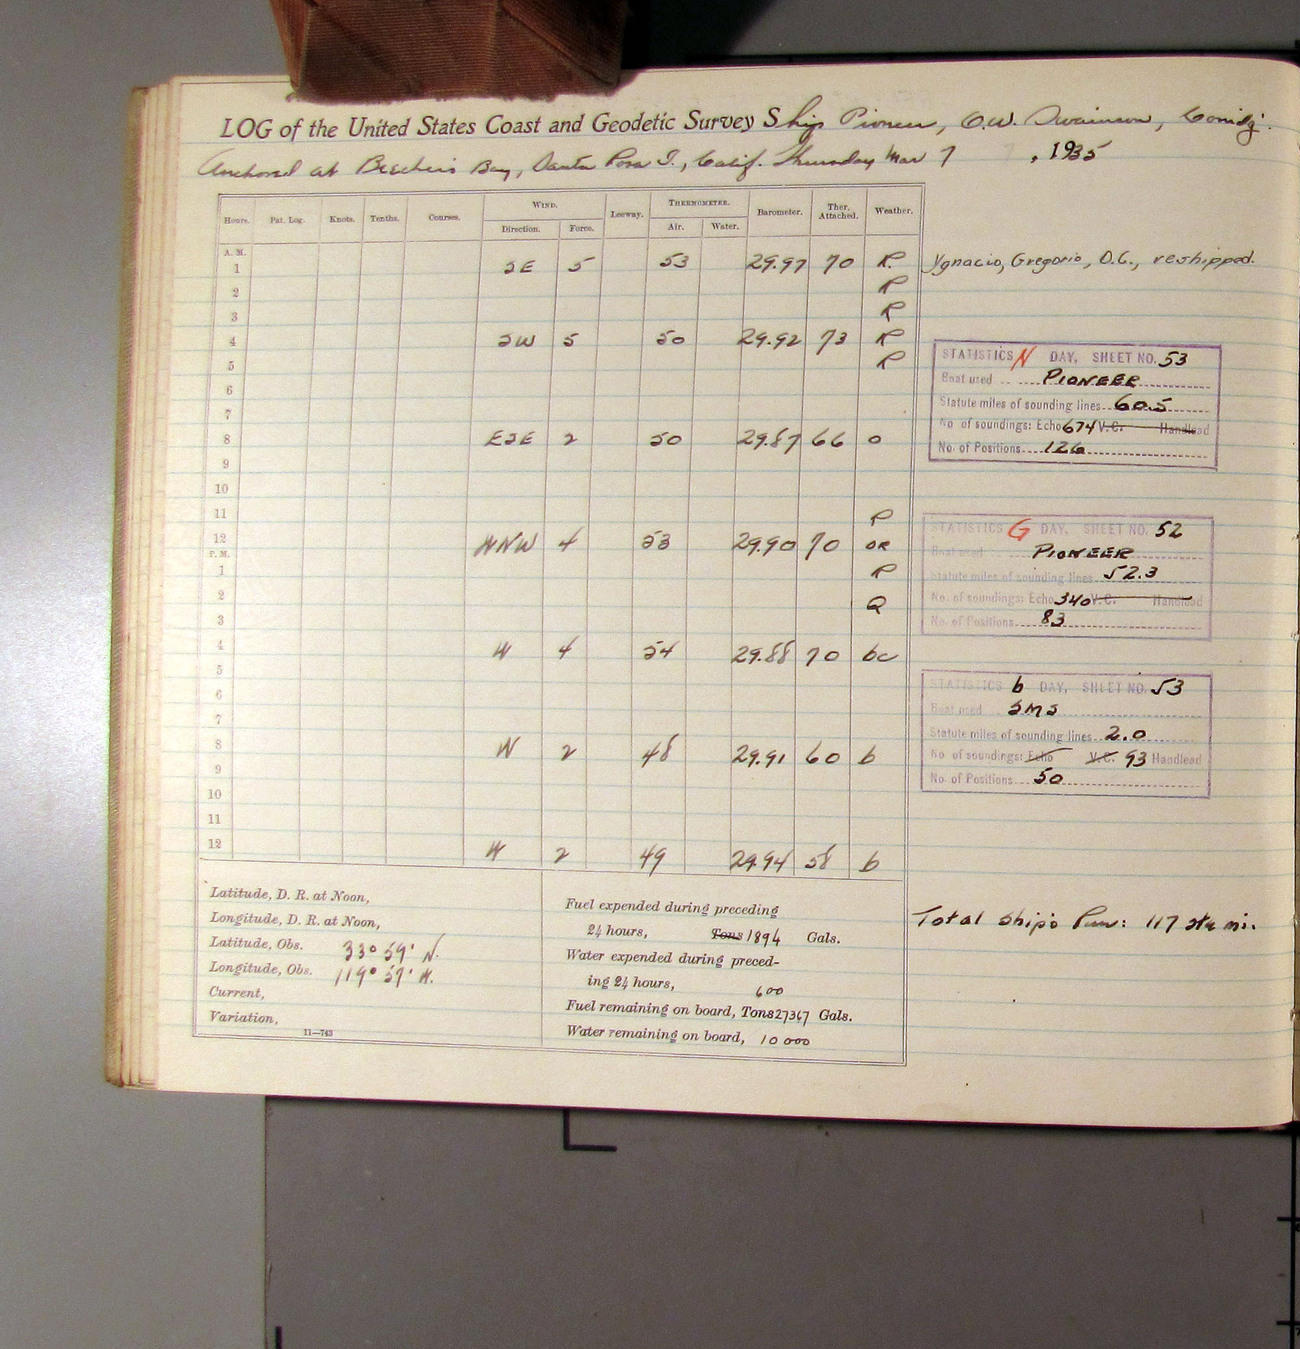 LOG of the United States Coast and Geodetic Survey Ship Pioneer, O.W. Swainson, Comdg.
Anchored at Bechers Bay, Santa Rosa I., Calif. Thursday Mar 7, 1935
Hours. Pat. Log. Knots. Tenths. Courses. WIND. Leeway. THERMOMETER. Barometer. Ther. Attached. Weather.
Direction. Force. Air. Water.
A. M.
1 SE 5 53 29.97 70 R. Ygnacio, Gregorio, O.C., reshipped.
2 R
3 R
4 SW 5 50 29.92 73 R
5 R
6
7
8 ESE 2 50 29.87 66 o
9
10
11 R
12 WNW 4 53 29.90 70 OR
P. M.
1 R
2 Q
3
4 W 4 54 29.88 70 bc
5
6
7
8 W 2 48 29.91 60 b
9
10
11
12 W 2 49 29.94 58 b
STATISTICS N DAY, SHEET NO. 53
Boat used PIONEER
Statute miles of sounding lines 60.5
No of soundings: Echo 674 V.C. Handlead
No. of Positions 126
STATISTICS G DAY, SHEET NO. 52
Boat used PIONEER
Statute miles of sounding lines 52.3
No. of soundings: Echo 340 V.C. Handlead
No. of Positions 83
STATISTICS b DAY, SHEET NO. 53
Boat used SMS
Statute miles of sounding lines 2.0
No of soundings: Echo V.C. 93 Handlead
No. of Positions 50
Total Ship's Run: 117 sta mi.
Latitude, D. R. at Noon,
Longitude, D. R. at Noon,
Latitude, Obs. 33° 59' N.
Longitude, Obs. 119° 59' W.
Current,
Variation,
11—743
Fuel expended during preceding
24 hours, Tons 1894 Gals.
Water expended during preced-
ing 24 hours, 600
Fuel remaining on board, Tons 27367 Gals.
Water remaining on board, 10 000